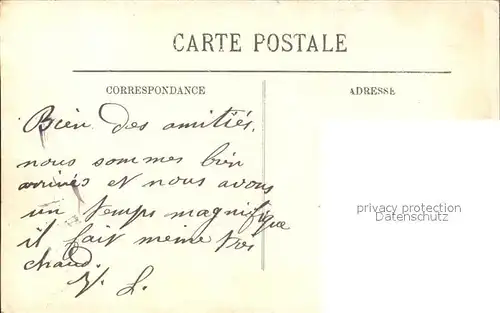 CARTE POSTALE
CORRESPONDANCE
ADRESSE
Bien des amitiés,
nous sommes bien
arrivés et nous avons
un temps magnifique
il fait meme tres
chaud.
L.
privacy protection
Datenschutz